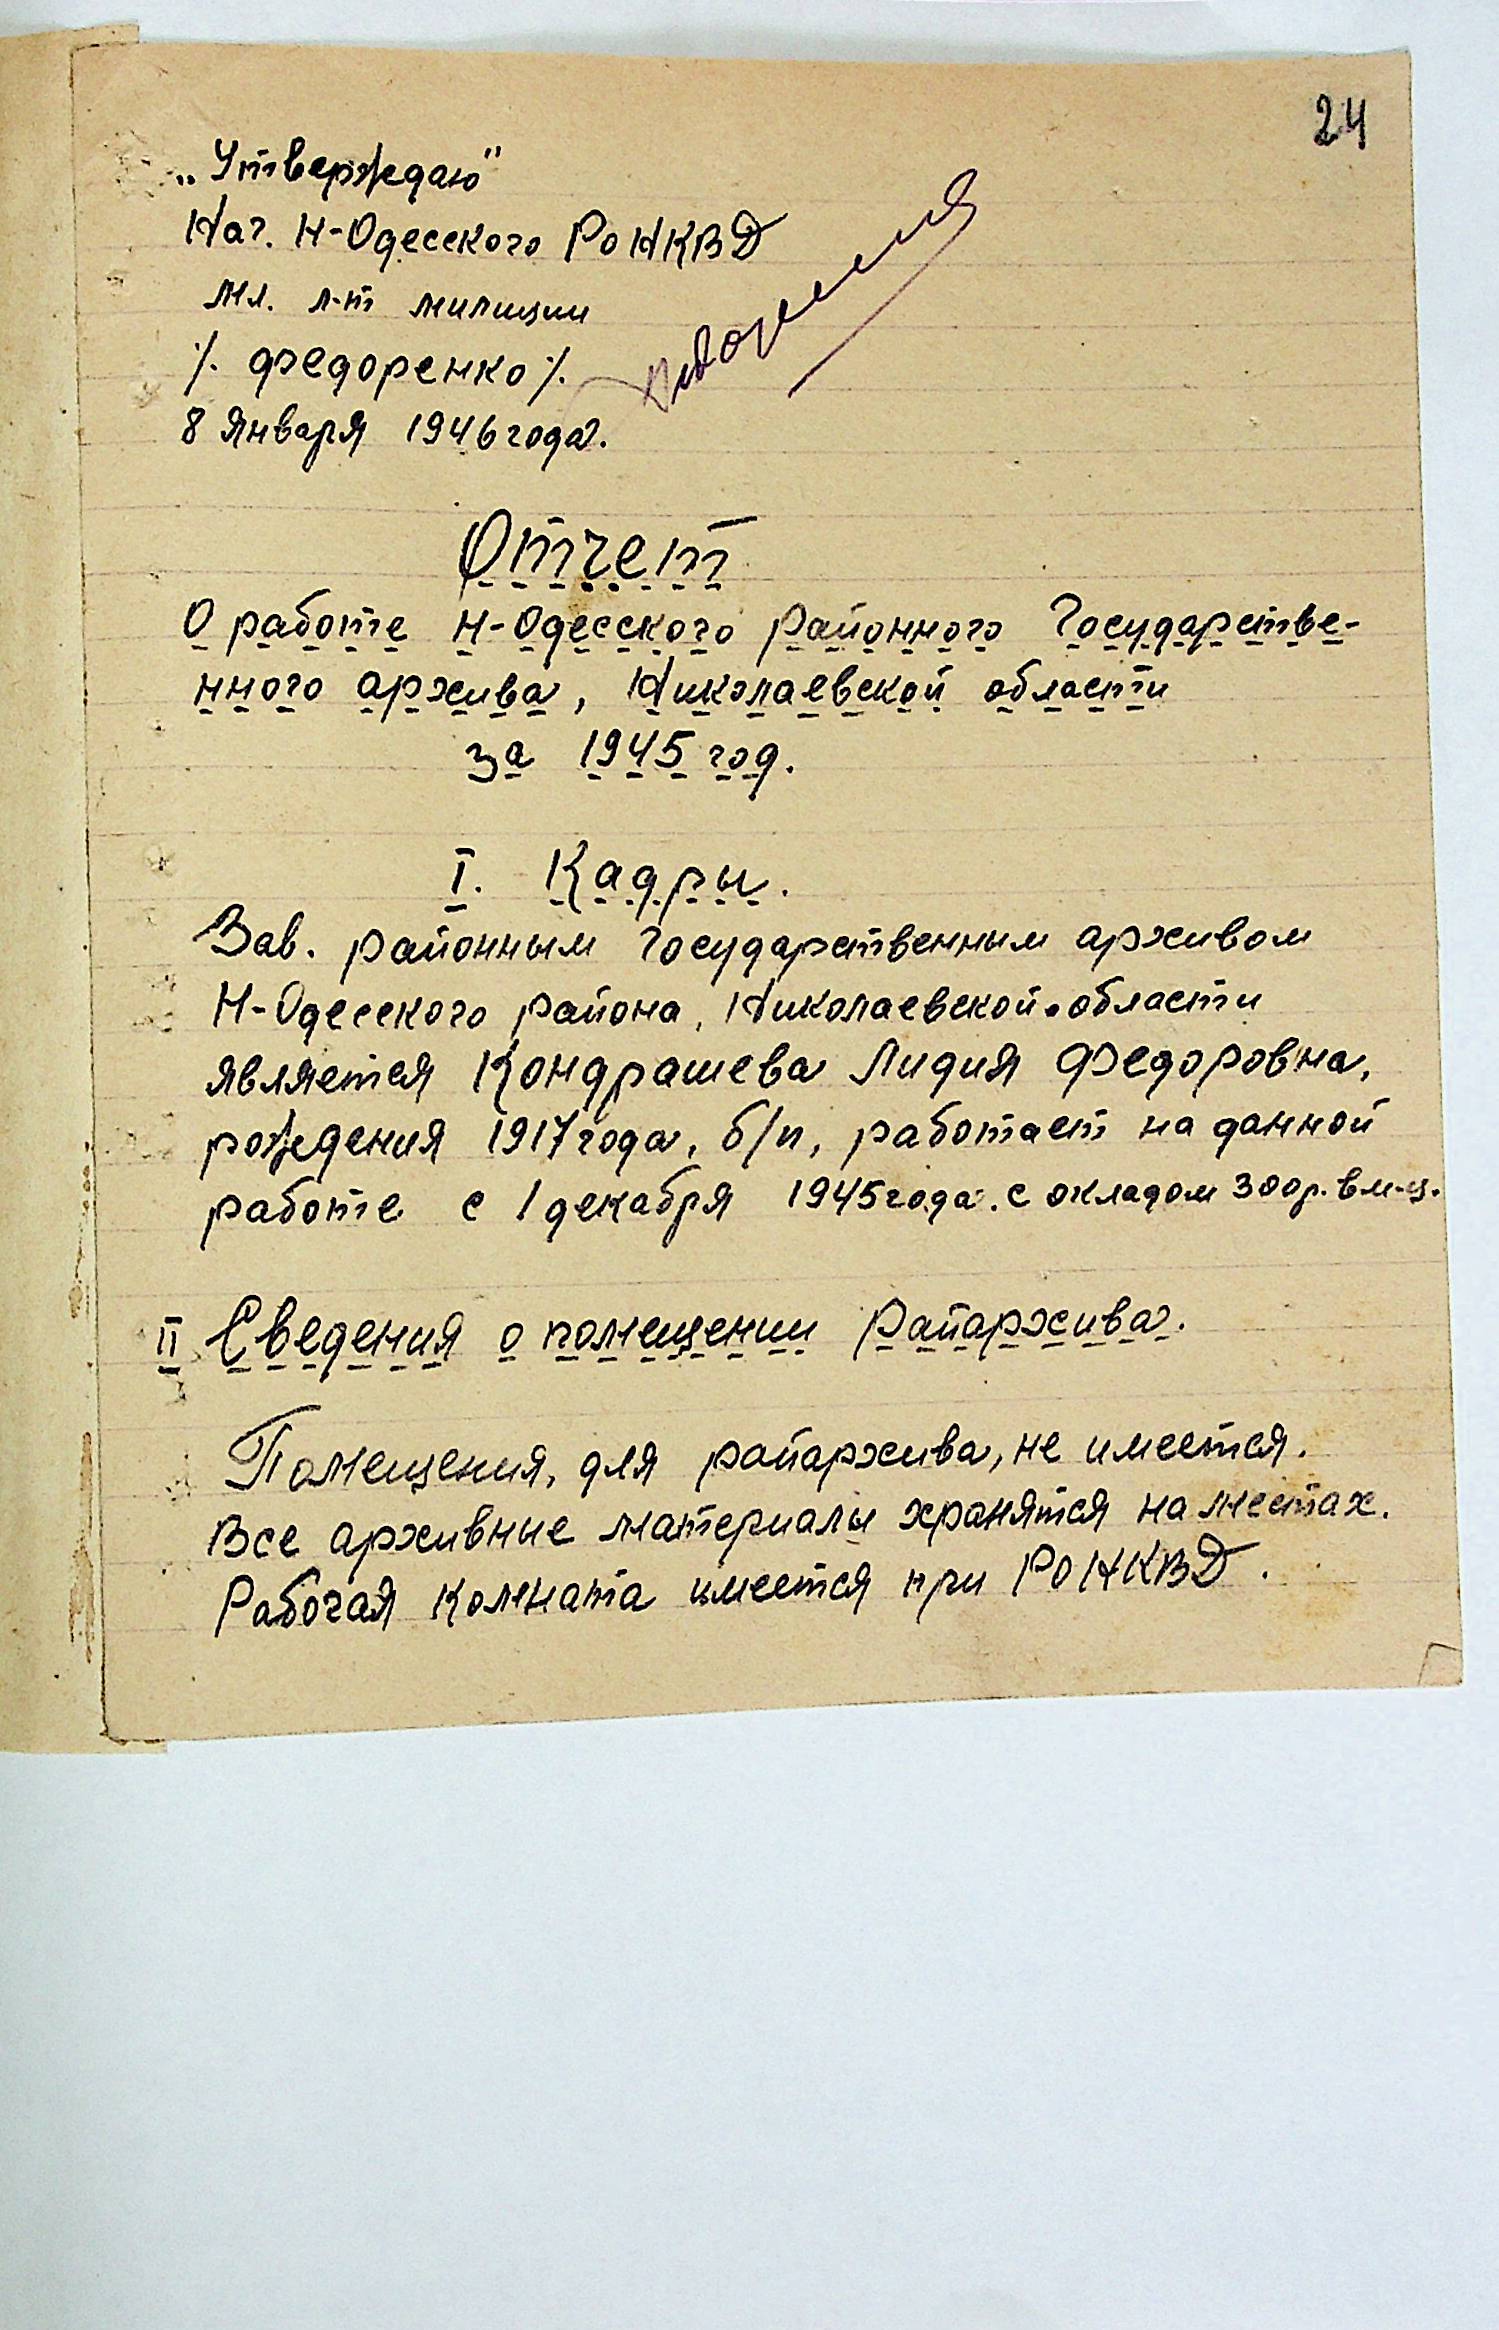 24
„Утверждаю"
Нач. Н-Одесского РО НКВД
мл. л-т милиции
/. Федоренко /.
8 января 1946 года.
Отчет
О работе Н-Одесского районного Государстве-
нного архива, Николаевской области
за 1945 год.
I. Кадры.
Зав. районным Государственным архивом
Н-Одесского района, Николаевской области
является Кондрашева Лидия Федоровна,
рождения 1917 года, б/п, работает на данной
работе с 1 декабря 1945 года. с окладом 300 р. в м-ц.
II Сведения о помещении Райархива.
Помещения, для райархива, не имеется.
Все архивные материалы хранятся на местах.
Рабочая комната имеется при РО НКВД.